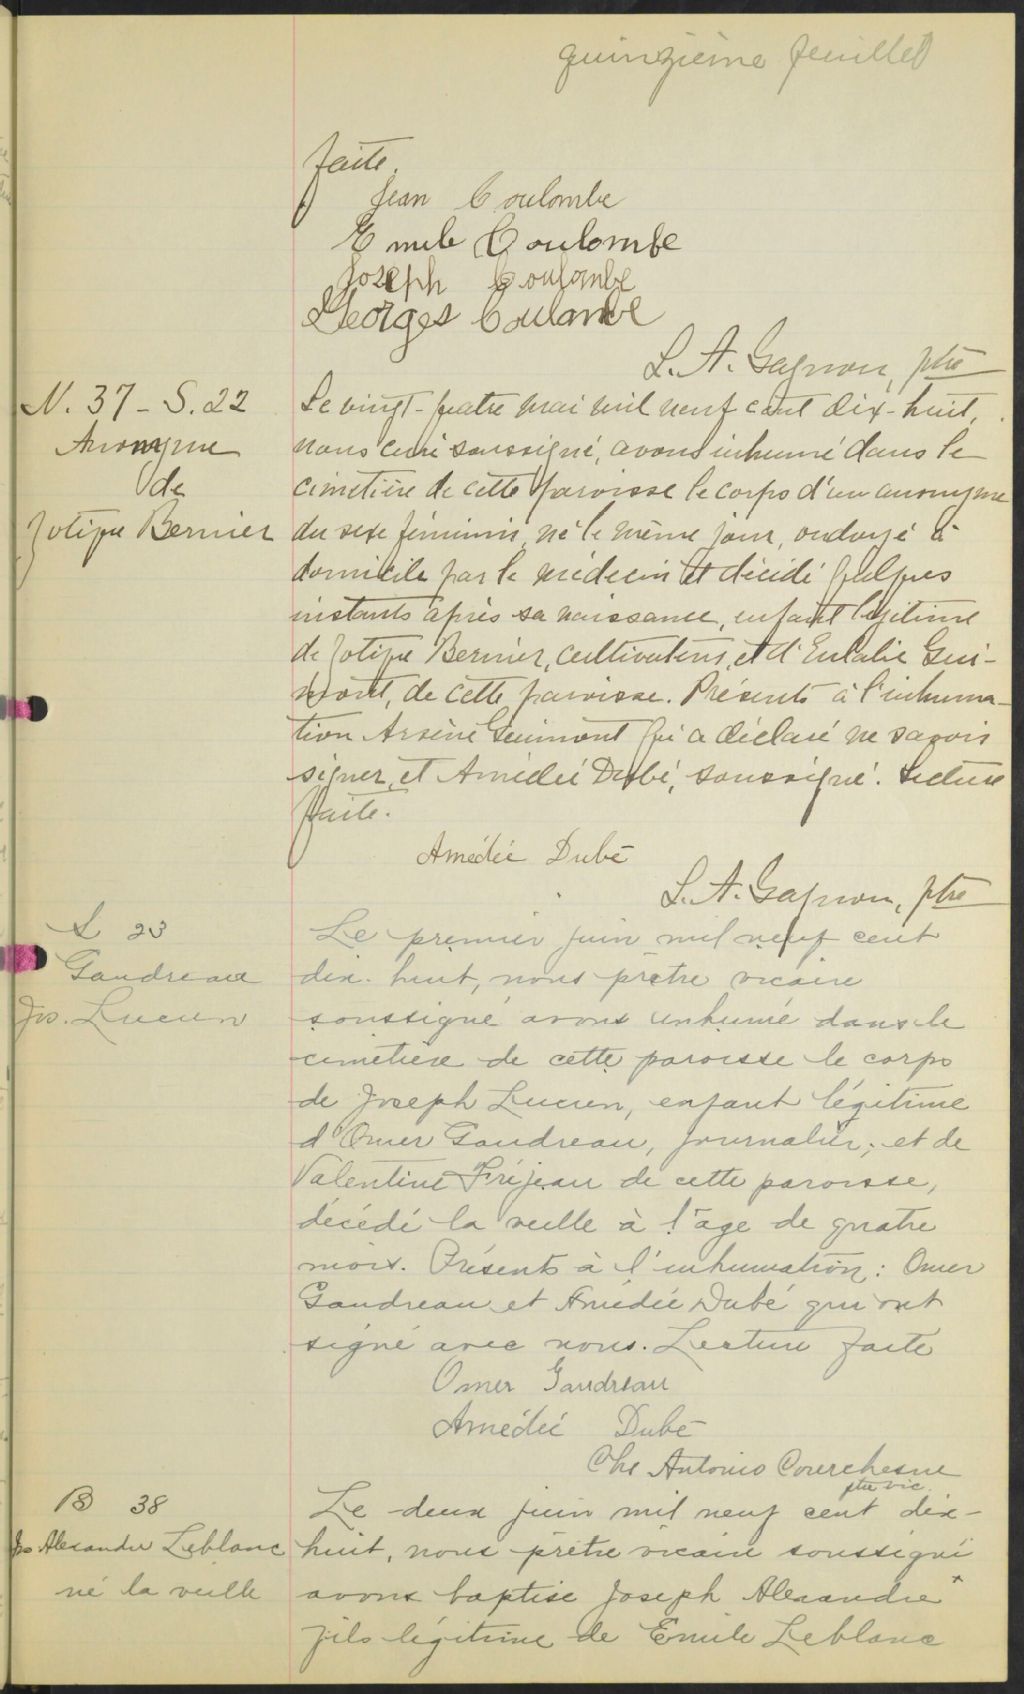 quinzième feuillet
faite.
Jean Coulombe
Emile Coulombe
Joseph Coulombe
Georges Coulombe
L. A. Gagnon, ptre
N. 37 - S. 22
Anonyme
de
Zotique Bernier
Le vingt-quatre mai mil neuf cent dix-huit,
nous curé soussigné, avons inhumé dans le
cimetière de cette paroisse le corps d'un anonyme
du sexe féminin, né le même jour, ondoyé à
domicile par le médecin et décédé quelques
instants après sa naissance, enfant légitime
de Zotique Bernier, cultivateur, et d'Eulalie Gui-
mont, de cette paroisse. Présents à l'inhuma-
tion Arsène Guimont qui a déclaré ne savoir
signer, et Amédée Dubé, soussigné. Lecture
faite.
Amédée Dubé
L. A. Gagnon, ptre
S 23
Gaudreau
Jos. Lucien
Le premier juin mil neuf cent
dix-huit, nous prêtre vicaire
soussigné avons inhumé dans le
cimetière de cette paroisse le corps
de Joseph Lucien, enfant légitime
d'Omer Gaudreau, journalier, et de
Valentine Fréjeau de cette paroisse,
décédé la veille à l'âge de quatre
mois. Présents à l'inhumation: Omer
Gaudreau et Amédée Dubé qui ont
signé avec nous. Lecture faite
Omer Gaudreau
Amédée Dubé
Chs Antonio Courchesne
ptre vic.
B 38
Jos Alexandre Leblanc
né la veille
Le deux juin mil neuf cent dix-
huit, nous prêtre vicaire soussigné
avons baptisé Joseph Alexandre x
fils légitime de Emile Leblanc